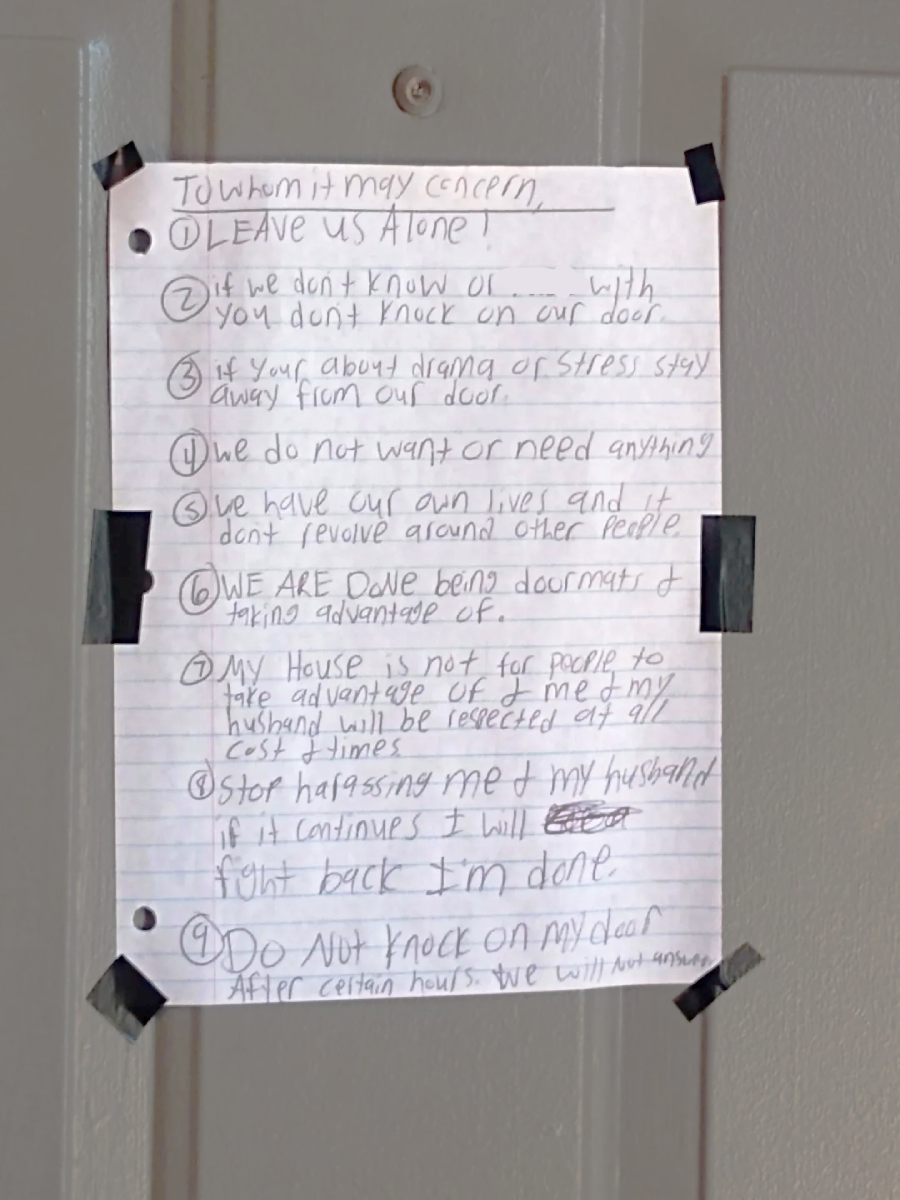 To whom it may concern,
① LEAVE us Alone!
② if we don't know or with
you don't knock on our door.
③ if your about drama or stress stay
away from our door.
④ we do not want or need anything
⑤ we have our own lives and it
dont revolve around other people.
⑥ WE ARE DONE being doormats &
taking advantage of.
⑦ My House is not for people to
take advantage of & me & my
husband will be respected at all
cost & times
⑧ Stop harassing me & my husband
if it continues I will
fight back I'm done.
⑨ DO NOT knock on my door
After certain hours. We will Not answer